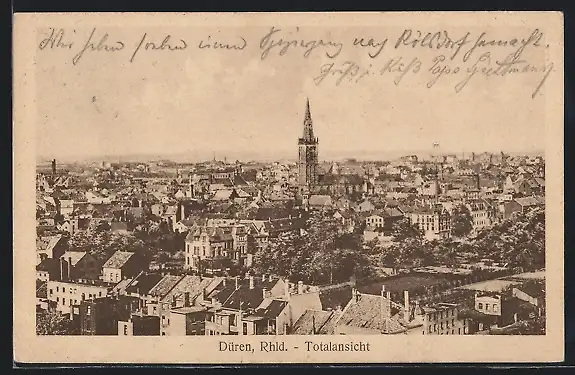 Wir haben soeben einen Spaziergang nach Rölsdorf gemacht.
Gruß u. Kuß Papa
Düren, Rhld. - Totalansicht